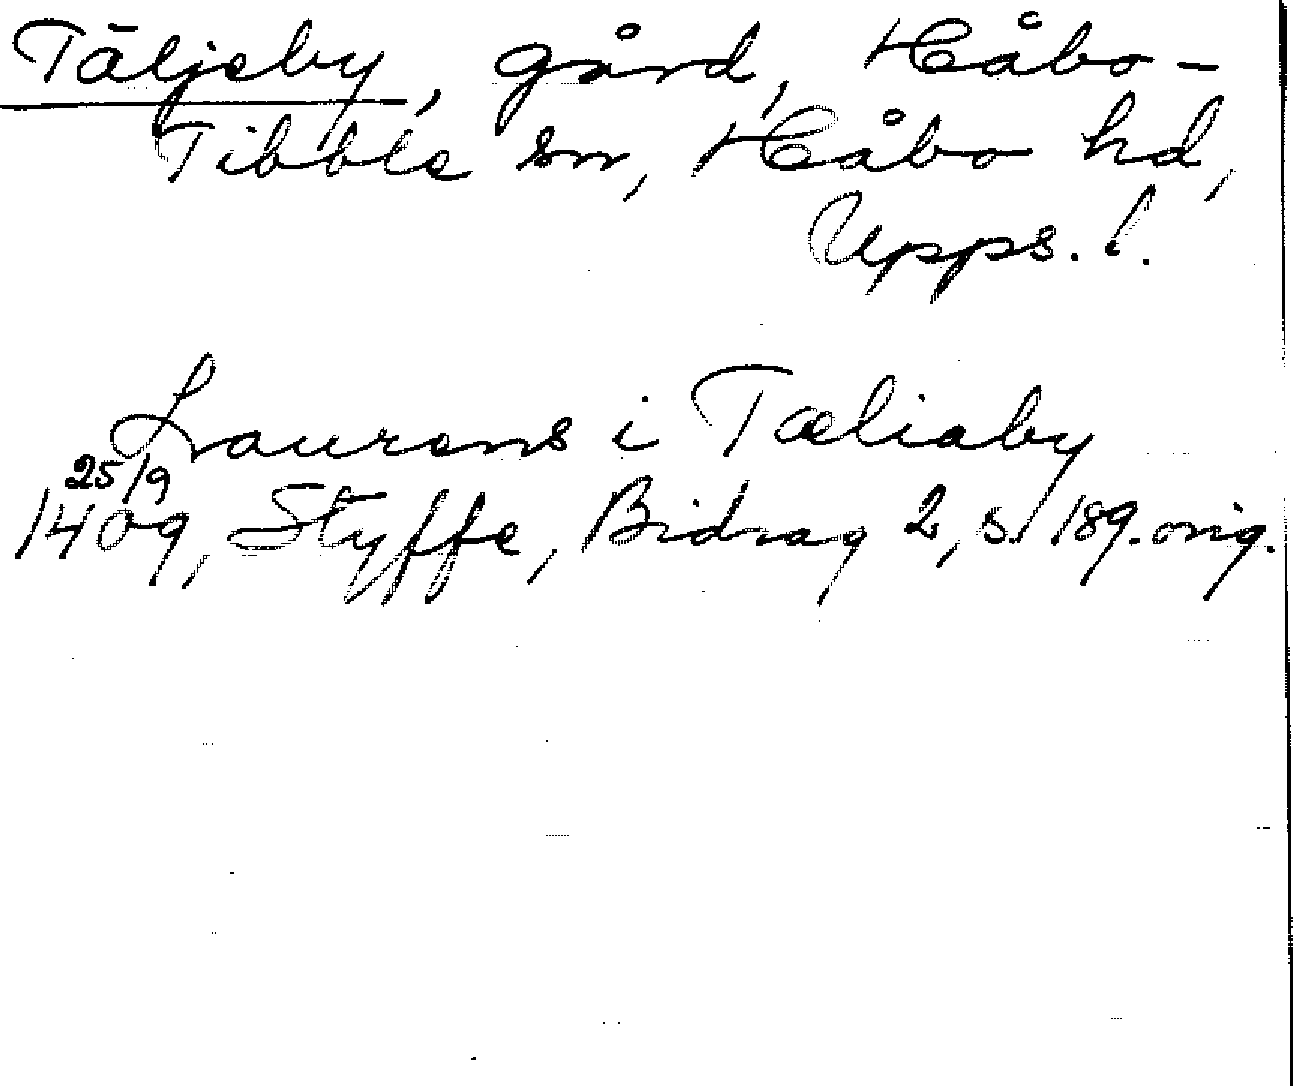 Täljeby, gård, Håbo-
Tibble sn, Håbo hd,
Upps. l.
Laurens i Tæliaby
25/9
1409, Styffe, Bidrag 2, s. 189. orig.